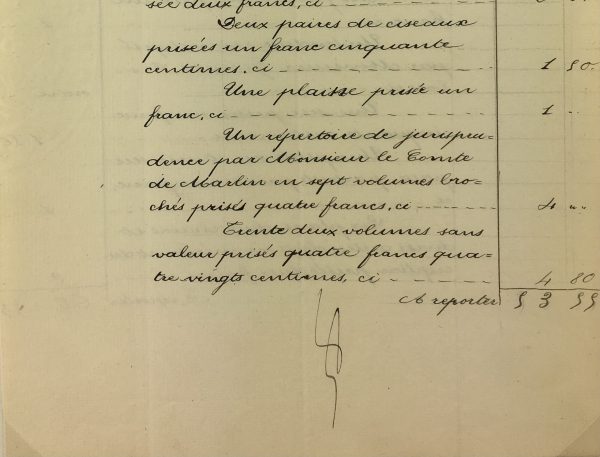 sée deux francs, ci
Deux paires de ciseaux
prisées un franc cinquante
centimes, ci 1 50
Une plaine prisée un
franc, ci 1 "
Un répertoire de jurispru=
dence par Monsieur le Comte
de Marlin en sept volumes bro=
chés prisés quatre francs, ci 4 "
Trente deux volumes sans
valeur prisés quatre francs qua=
tre vingts centimes, ci 4 80
A reporter 5 3 55